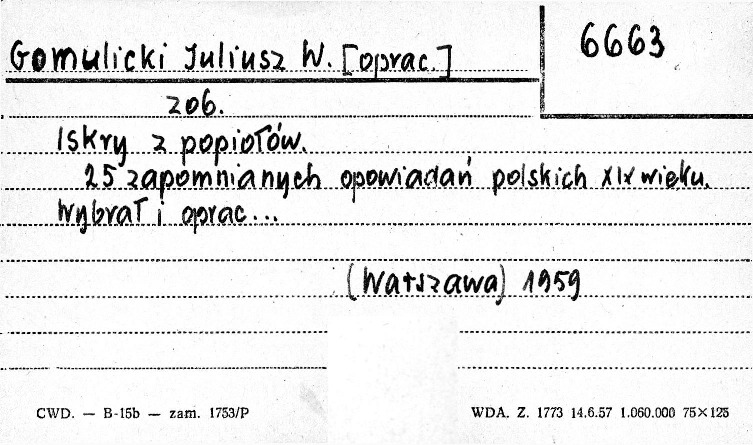 Gomulicki Juliusz W. [oprac.]
6663
zob.
Iskry z popiołów.
25 zapomnianych opowiadań polskich XIX wieku.
Wybrał i oprac...
(Warszawa) 1959
CWD. — B-15b — zam. 1753/P
WDA. Z. 1773 14.6.57 1.060.000 75×125